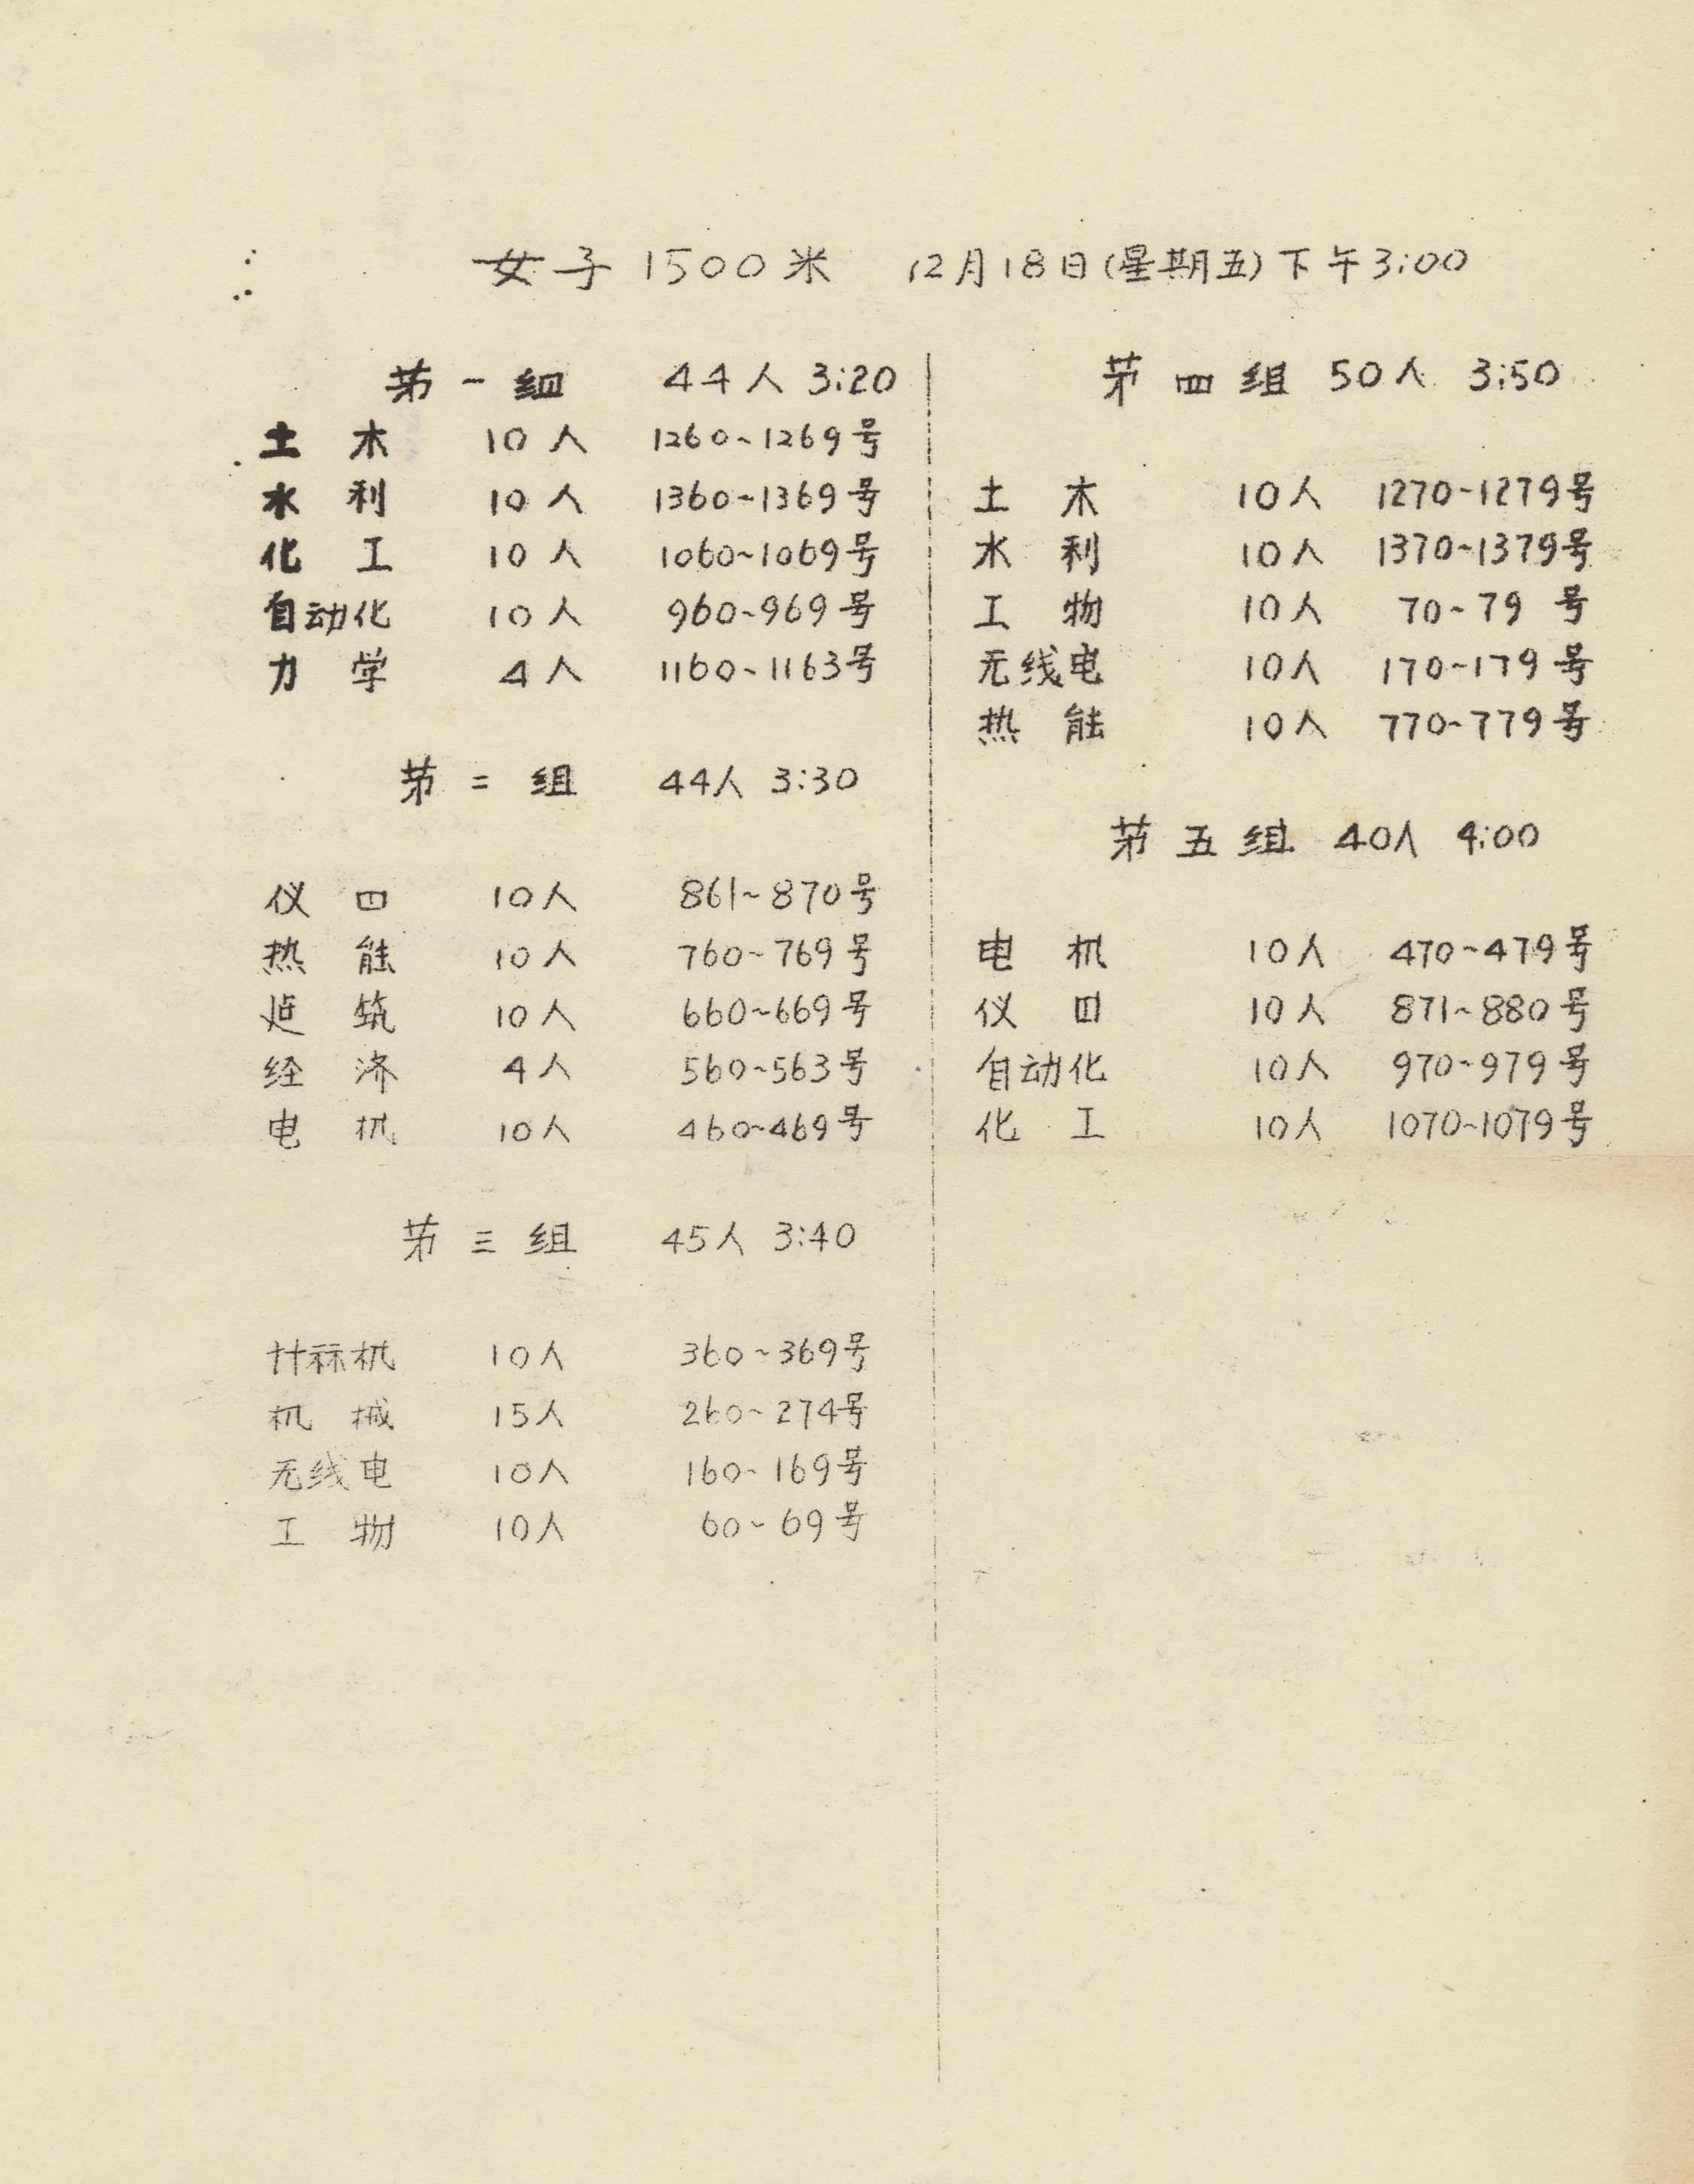 女子 1500米 12月18日(星期五)下午3:00
第一组 44人 3:20
土木 10人 1260~1269号
水利 10人 1360~1369号
化工 10人 1060~1069号
自动化 10人 960~969号
力学 4人 1160~1163号
第二组 44人 3:30
仪四 10人 861~870号
热能 10人 760~769号
建筑 10人 660~669号
经济 4人 560~563号
电机 10人 460~469号
第三组 45人 3:40
计祘机 10人 360~369号
机械 15人 260~274号
无线电 10人 160~169号
工物 10人 60~69号
第四组 50人 3:50
土木 10人 1270~1279号
水利 10人 1370~1379号
工物 10人 70~79号
无线电 10人 170~179号
热能 10人 770~779号
第五组 40人 4:00
电机 10人 470~479号
仪四 10人 871~880号
自动化 10人 970~979号
化工 10人 1070~1079号